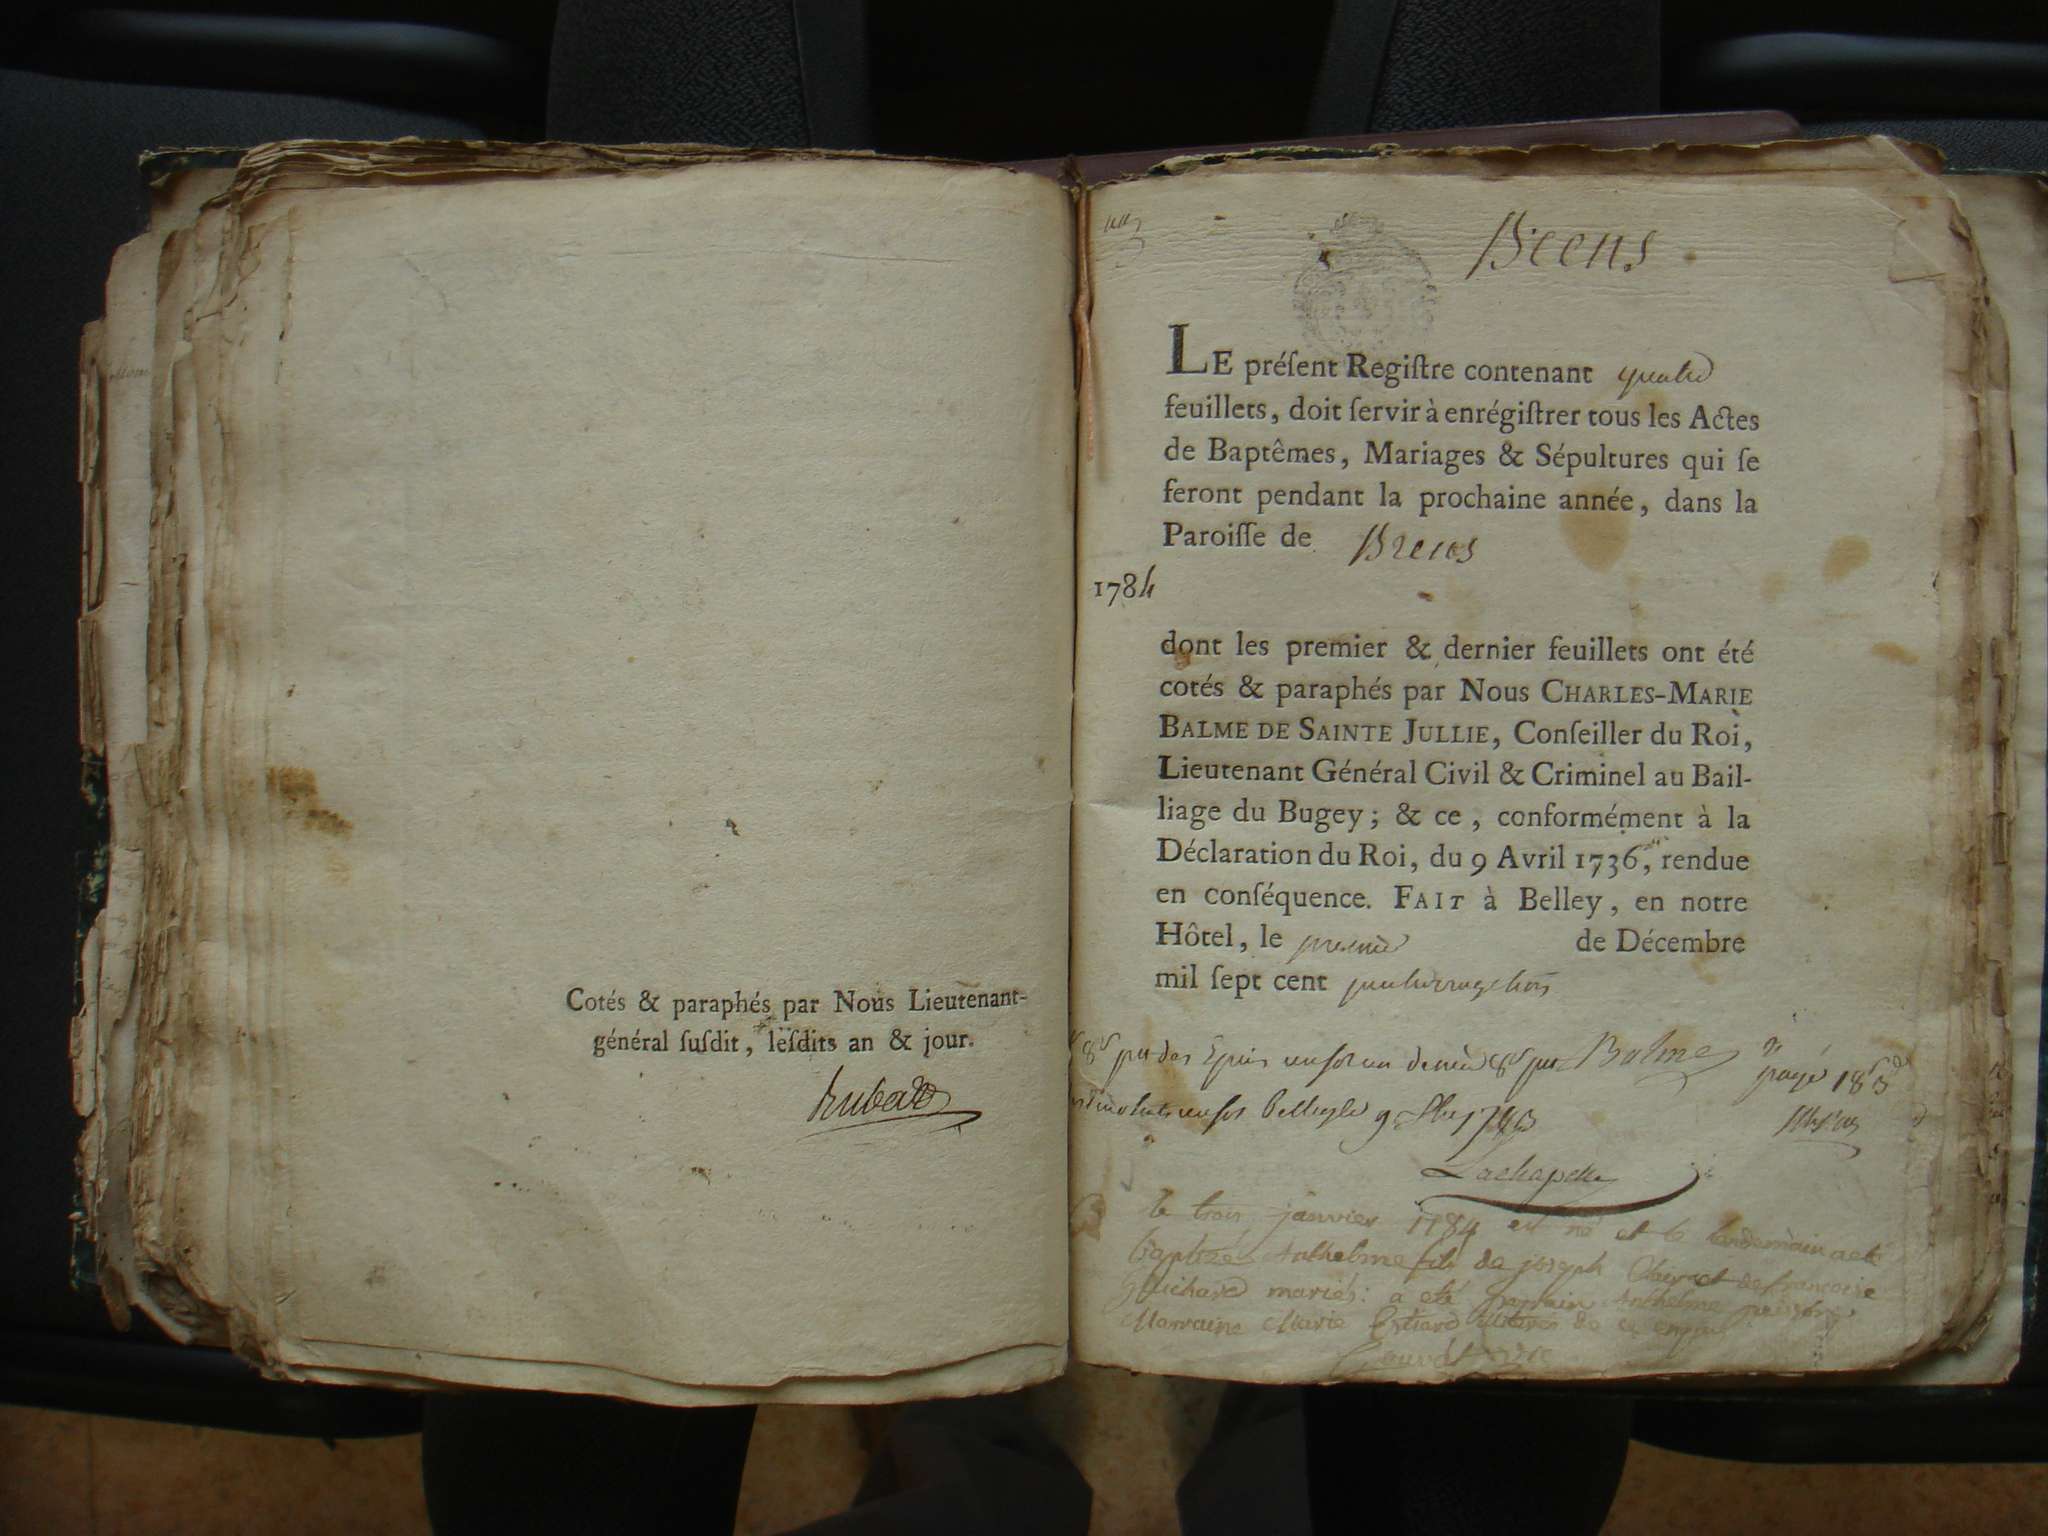 Cotés & paraphés par Nous Lieutenant-
général ſuſdit, leſdits an & jour.
Brens
LE préſent Regiſtre contenant quatre
feuillets, doit ſervir à enrégiſtrer tous les Actes
de Baptêmes, Mariages & Sépultures qui ſe
feront pendant la prochaine année, dans la
Paroiſſe de Brens
1784
dont les premier & dernier feuillets ont été
cotés & paraphés par Nous CHARLES-MARIE
BALME DE SAINTE JULLIE, Conſeiller du Roi,
Lieutenant Général Civil & Criminel au Bail-
liage du Bugey; & ce, conformément à la
Déclaration du Roi, du 9 Avril 1736, rendue
en conſéquence. FAIT à Belley, en notre
Hôtel, le premier de Décembre
mil ſept cent quatrevingt trois
Balme
payé
1783
Lachapelle
le trois janvier 1784 est né et le landemain a eté
baptizé Anthelme fils de joseph et de francoise
Guichard mariés: a eté parrain Anthelme
Marraine Marie de